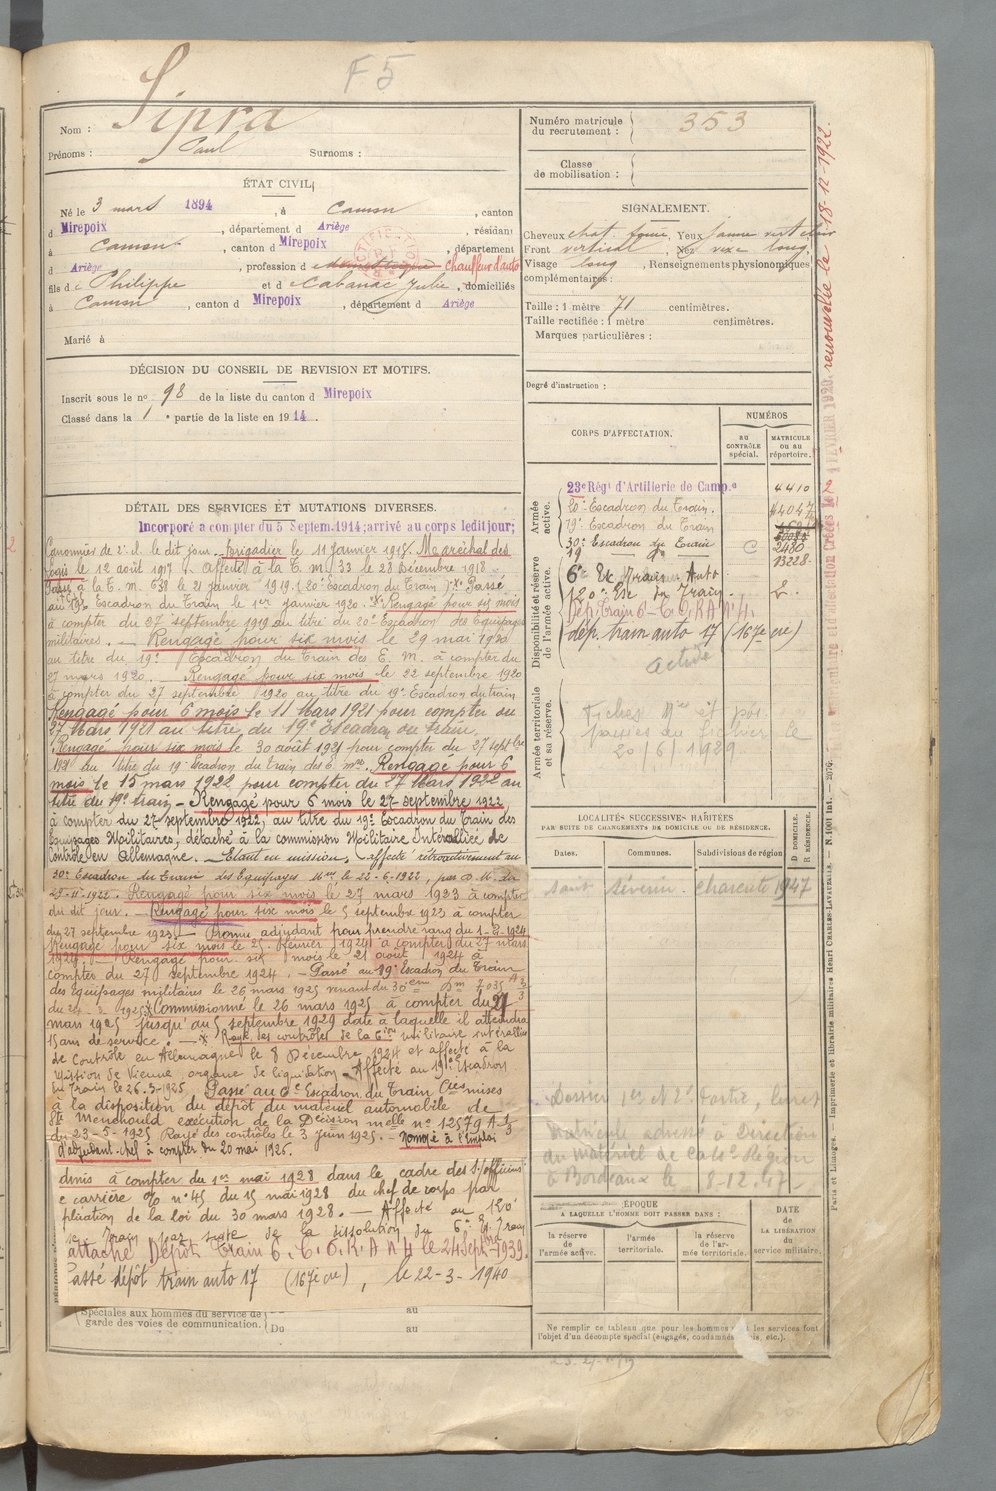 F5
Nom : Sipra
Prénoms : Paul Surnoms :
ÉTAT CIVIL
Né le 3 mars 1894, à Camon, canton
d Mirepoix, département d Ariège, résidant
à Camon, canton d Mirepoix, département
d Ariège, profession d chauffeur d'auto
fils de Philippe et de Cabanac Julie, domiciliés
à Camon, canton d Mirepoix, département d Ariège
Marié à
DÉCISION DU CONSEIL DE REVISION ET MOTIFS.
Inscrit sous le no 98 de la liste du canton d Mirepoix
Classé dans la 1 e partie de la liste en 1914.
DÉTAIL DES SERVICES ET MUTATIONS DIVERSES.
Incorporé a compter du 5 Septem. 1914; arrivé au corps ledit jour;
Canonnier de 2e cl. le dit jour. Brigadier le 11 Janvier 1915. Maréchal des
logis le 12 août 1917. Affecté à la T. M. 33 le 28 Décembre 1918.
Passé à la T. M. 631 le 21 janvier 1919 (20e Escadron du Train). Passé
au 19e Escadron du Train le 1er Janvier 1920. Rengagé pour six mois
à compter du 27 septembre 1919 au titre du 20e Escadron des Équipages
militaires. — Rengagé pour six mois le 29 mai 1920
au titre du 19e Escadron du Train des E. M. à compter du
27 mars 1920. — Rengagé pour six mois le 22 septembre 1920
à compter du 27 septembre 1920 au titre du 19e Escadron du train
Rengagé pour 6 mois le 11 Mars 1921 pour compter du
27 Mars 1921 au titre du 19e Escadron du train.
Rengagé pour six mois le 30 août 1921 pour compter du 27 septbre
1921 au titre du 19e Escadron du Train des E. Mres. Rengagé pour 6
mois le 15 mars 1922 pour compter du 27 Mars 1922 au
titre du 19e train — Rengagé pour 6 mois le 27 septembre 1922,
à compter du 27 septembre 1922, au titre du 19e Escadron du Train des
Équipages Militaires, détaché à la commission Militaire Interalliée de
Contrôle en Allemagne. — Étant en mission, affecté rétroactivement au
30e Escadron du Train des Equipages Mres le 23-6-1922, par D. M. du
29-11-1922. Rengagé pour six mois le 27 mars 1923 à compter
du dit jour. — Rengagé pour six mois le 5 septembre 1923 à compter
du 27 septembre 1923. — Promu adjudant pour prendre rang du
Rengagé pour six mois le 25 Février 1924 à compter du 27 mars
1924. — Rengagé pour six mois le 21 août 1924 à
compter du 27 septembre 1924. — Passé au 19e Escadron du Train
des Equipages militaires le 26 mars 1925 venant du 30eme
Commissionné le 26 mars 1925 à compter du 27
mars 1925 jusqu'au 5 septembre 1929 date à laquelle il atteindra
15 ans de service. — Rayé des contrôles de la militaire interalliée
de Contrôle en Allemagne le 8 Décembre 1924 et affecté à la
Mission de Vienne, organe de liquidation. Affecté au 19e Escadron
du Train le 26-3-1925. Passé au 6e Escadron du Train Cies mises
à la disposition du dépôt du matériel automobile de
Ste Menehould exécution de la Décision melle no 12579 A 1/3
du 23-5-1925 Rayé des contrôles le 3 Juin 1925. — Nommé à l'emploi
d'adjudant-chef à compter du 20 mai 1926.
dmis à compter du 1er mai 1928 dans le cadre des S/officiers
e carrière no 45 du 15 mai 1928 du chef de corps par
plication de la loi du 30 mars 1928. — Affecté au 120e
Train par suite de la dissolution du 6e Train
attaché Dépôt Train 6. C. O. R. A N 4 le 24 Septbre 1939.
assé dépôt train auto 17 (167e cie), le 22-3-1940
Spéciales aux hommes du service de
garde des voies de communication. au
Du au
Numéro matricule du recrutement : 353
Classe de mobilisation :
SIGNALEMENT.
Cheveux chat. foncé, Yeux jaune vert clair
Front vertical, Nez vexe long
Visage long, Renseignements physionomiques
complémentaires :
Taille : 1 mètre 71 centimètres.
Taille rectifiée : 1 mètre centimètres.
Marques particulières :
Degré d'instruction :
CORPS D'AFFECTATION.
NUMÉROS
AU CONTRÔLE spécial.
MATRICULE ou au répertoire.
Armée active.
23e Régt d'Artillerie de Camp.e 4410
20e Escadron du Train.
19e Escadron du Train
30e Escadron du Train C 2480
19 — do — 13228
Disponibilité et réserve de l'armée active.
6e Ex Train Auto
120e Esc du Train
Dép. Train 6
dép. train auto 17 (167e cie)
Active
Armée territoriale et sa réserve.
Fiches
passées au fichier le
20/6/1929
LOCALITÉS SUCCESSIVES HABITÉES
PAR SUITE DE CHANGEMENTS DE DOMICILE OU DE RÉSIDENCE.
Dates. Communes. Subdivisions de région D. DOMICILE. R. RÉSIDENCE.
Saint Séverin. Charente 1947
Dossier 1er et 2e Partie, livret
matricule adressé à Direction
du matériel de la Région
à Bordeaux le 8-12.47.
ÉPOQUE
A LAQUELLE L'HOMME DOIT PASSER DANS :
la réserve de l'armée active.
l'armée territoriale.
la réserve de l'armée territoriale.
DATE DE LA LIBÉRATION du service militaire.
Ne remplir ce tableau que pour les hommes les services font
l'objet d'un décompte spécial (engagés, condamnés, etc.).
FÉVRIER 1920. renouvelée le 18-12-1922.
Paris et Limoges. — Imprimerie et librairie militaires Henri CHARLES-LAVAUZELLE. — N. 1001 Int. — 2076.